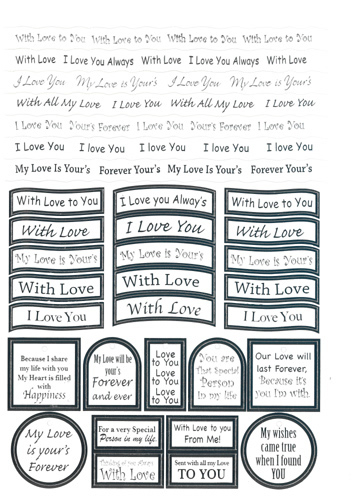 With Love to You With Love to You With Love to You With Love to You
With Love I Love You Always With Love I Love You Always With Love
I Love You My Love is Your's I Love You My Love is Your's
With All My Love I Love You With All My Love I Love You
I Love You Your's Forever I Love You Your's Forever I Love You
I Love You I love You I love You I love You I Love You
My Love Is Your's Forever Your's My Love Is Your's Forever Your's
With Love to You I Love you Alway's With Love to You
With Love I Love You With Love
My Love is Your's My Love is Your's My Love is Your's
With Love With Love With Love
I Love You With Love I Love You
Because I share
my life with you
My Heart is filled
with
Happiness
My Love will be
your's
Forever
and ever
Love
to You
Love
to You
Love
to You
You are
That Special
Person
in my life
Our Love will
last Forever,
Because it's
you I'm with.
My Love
is your's
Forever
For a very Special
Person in my life.
With Love to you
From Me!
Thinking of you Always
With Love
Sent with all my Love
TO YOU
My wishes
came true
when I found
YOU